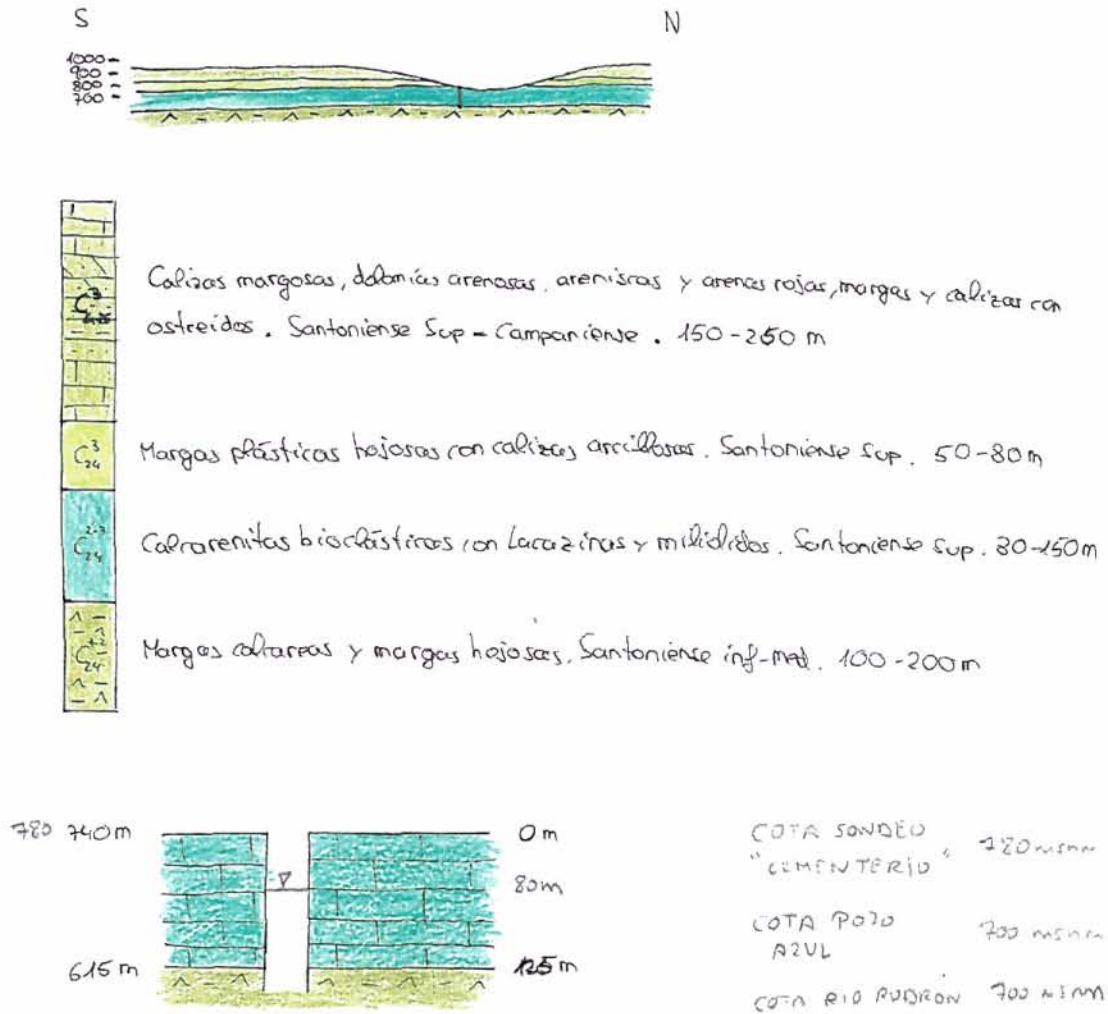 S N
1000
900
800
700
Calizas margosas, dolomías arenosas, areniscas y arenas rojas, margas y calizas con
ostreidos. Santoniense Sup - Campaniense. 150-250 m
C³₂₄
Margas plásticas hojosas con calizas arcillosas. Santoniense Sup. 50-80m
C²⁻³₂₄
Calcarenitas bioclásticas con Lacazinas y miliólidos. Santoniense Sup. 30-150m
Margas calcareas y margas hojosas. Santoniense inf-med. 100-200m
780 740m 0m
80m
615m 125m
COTA SONDEO
"CEMENTERIO" 780 msnm
COTA POZO
AZUL 700 msnm
COTA RIO RUDRON 700 msnm